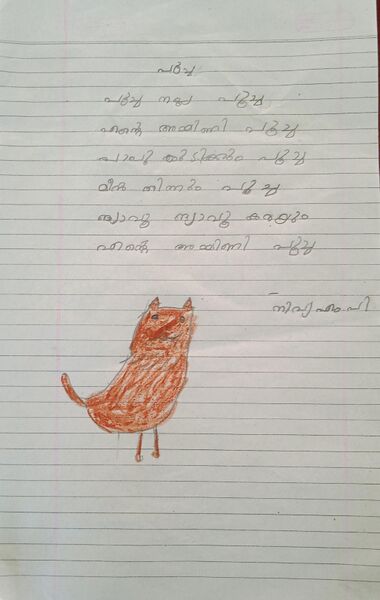 പൂച്ച
പൂച്ച നല്ല പൂച്ച
എന്റെ അമ്മിണി പൂച്ച
പാലു കുടിക്കും പൂച്ച
മീൻ തിന്നും പൂച്ച
മ്യാവൂ മ്യാവൂ കരയും
എന്റെ അമ്മിണി പൂച്ച
എം.പി